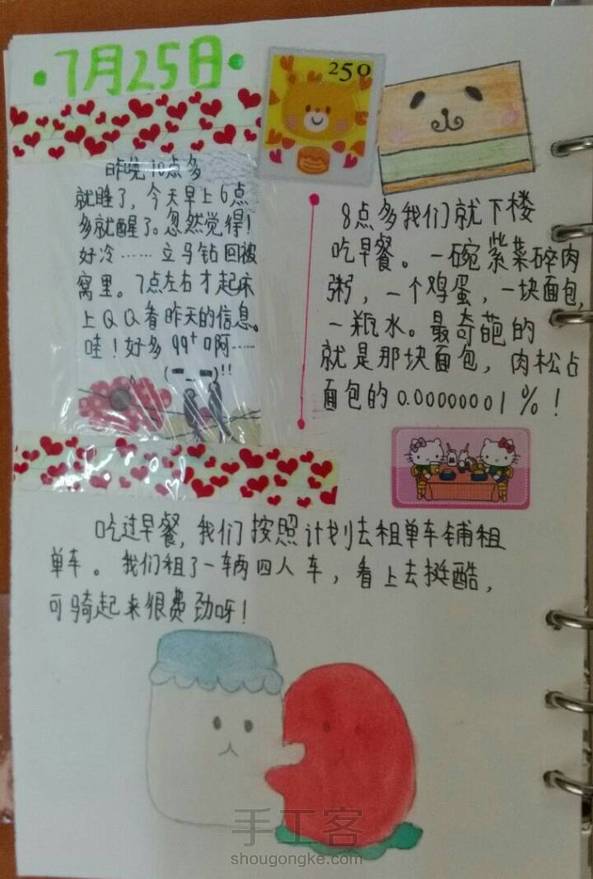 7月25日
250
昨晚10点多
就睡了，今天早上6点
多就醒了。忽然觉得！
好冷……立马钻回被
窝里。7点左右才起床
上QQ看昨天的信息。
哇！好多99⁺啊……
8点多我们就下楼
吃早餐。一碗紫菜碎肉
粥，一个鸡蛋，一块面包，
一瓶水。最奇葩的
就是那块面包，肉松占
面包的0.00000001%！
吃过早餐，我们按照计划去租单车铺租
单车。我们租了一车两四人车，看上去挺酷，
可骑起来很费劲呀！
手工客
shougongke.com